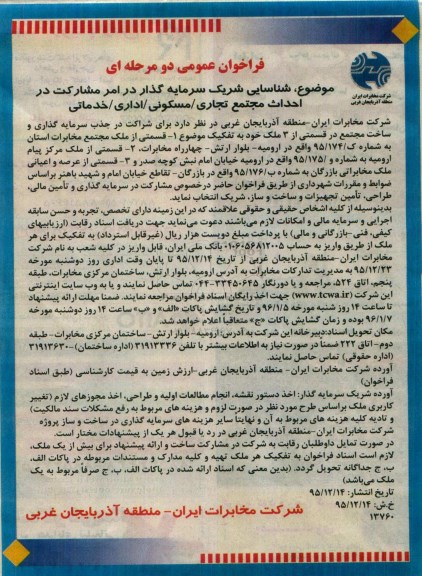 فراخوان عمومی دو مرحله ای
شرکت مخابرات ایران
منطقه آذربایجان غربی
موضوع: شناسایی شریک سرمایه گذار در امر مشارکت در
احداث مجتمع تجاری/مسکونی/اداری/خدماتی
شرکت مخابرات ایران-منطقه آذربایجان غربی در نظر دارد برای شراکت در جذب سرمایه گذاری و
ساخت مجتمع در قسمتی از ۳ ملک خود به تفکیک موضوع ۱- قسمتی از ملک مجتمع مخابرات استان
به شماره ک/۹۵/۱۷۴ واقع در ارومیه- بلوار ارتش- چهارراه مخابرات، ۲- قسمتی از ملک مرکز پیام
ارومیه به شماره و /۹۵/۱۷۵ واقع در ارومیه خیابان امام نبش کوچه صدر و ۳- قسمتی از عرصه و اعیانی
ملک مخابراتی بازرگان به شماره ب/۹۵/۱۷۶ واقع در بازرگان- تقاطع خیابان امام و شهید باهنر براساس
ضوابط و مقررات شهرداری از طریق فراخوان حاضر درخصوص مشارکت در سرمایه گذاری و تأمین مالی،
طراحی، تأمین تجهیزات و ساخت و ساز، شریک انتخاب نماید.
بدینوسیله از کلیه اشخاص حقیقی و حقوقی علاقمند که در این زمینه دارای تخصص، تجربه و حسن سابقه
اجرایی و سرمایه مالی و امکانات لازم می‌باشند دعوت می‌نماید جهت دریافت اسناد رقابت (ارزیابیهای
کیفی، فنی -بازرگانی و مالی) با پرداخت مبلغ دویست هزار ریال (غیرقابل استرداد) به تفکیک برای هر
ملک از طریق واریز به حساب ۰۱۰۶۰۵۶۸۱۲۰۰۵ بانک ملی ایران، قابل واریز در کلیه شعب به نام شرکت
مخابرات ایران-منطقه آذربایجان غربی از تاریخ ۹۵/۱۲/۱۴ تا پایان وقت اداری روز دوشنبه مورخه
۹۵/۱۲/۲۳ به مدیریت تدارکات مخابرات به آدرس ارومیه، بلوار ارتش، ساختمان مرکزی مخابرات، طبقه
پنجم، اتاق ۵۲۴، مراجعه و یا دورنگار ۳۳۴۵۰۶۴۵-۰۴۴ تماس حاصل نمایند و یا به وب سایت اینترنتی
این شرکت (www.tcwa.ir) جهت اخذ رایگان اسناد فراخوان مراجعه نمایند. ضمنا مهلت ارائه پیشنهاد
تا ساعت ۱۴ روز شنبه مورخه ۹۶/۱/۵ و تاریخ گشایش پاکات «الف» و «ب» ساعت ۱۴ روز دوشنبه مورخه
۹۶/۱/۷ بوده و زمان گشایش پاکات «ج» متعاقباً اعلام خواهد شد.
مکان تحویل اسناد:دبیرخانه این شرکت به آدرس:ارومیه- بلوار ارتش- ساختمان مرکزی مخابرات-طبقه
دوم-اتاق ۲۲۲ ضمنا در صورت نیاز به اطلاعات بیشتر با تلفن ۳۱۹۱۳۳۳۶ (اداره ساختمان)-۳۱۹۱۳۶۳۰
(اداره حقوقی) تماس حاصل نمایند.
آورده شرکت مخابرات ایران- منطقه آذربایجان غربی-ارزش زمین به قیمت کارشناسی (طبق اسناد
فراخوان)
آورده شریک سرمایه گذار: اخذ دستور نقشه، انجام مطالعات اولیه و طراحی، اخذ مجوزهای لازم (تغییر
کاربری ملک براساس طرح مورد نظر در صورت لزوم و هزینه های مربوط به رفع مشکلات سند مالکیت)
و تادیه کلیه هزینه های مربوط به آن و نهایتا سایر هزینه های سرمایه گذاری در ساخت و ساز پروژه
شرکت مخابرات ایران-منطقه آذربایجان غربی در رد یا قبول هر یک از پیشنهادات مختار است.
در صورت تمایل داوطلبان رقابت به شرکت در مشارکت ساخت و ارائه پیشنهاد برای بیش از یک ملک،
لازم است اسناد فراخوان به تفکیک هر ملک تهیه و کلیه مدارک و مستندات مربوطه در پاکات الف،
ب، ج جداگانه تحویل گردد. (بدین معنی که اسناد ارائه شده در پاکات الف، ب، ج صرفاً مربوط به یک
ملک می‌باشد)
تاریخ انتشار: ۹۵/۱۲/۱۴
خ.ش: ۹۵/۱۲/۱۴
۱۳۷۶۰
شرکت مخابرات ایران- منطقه آذربایجان غربی